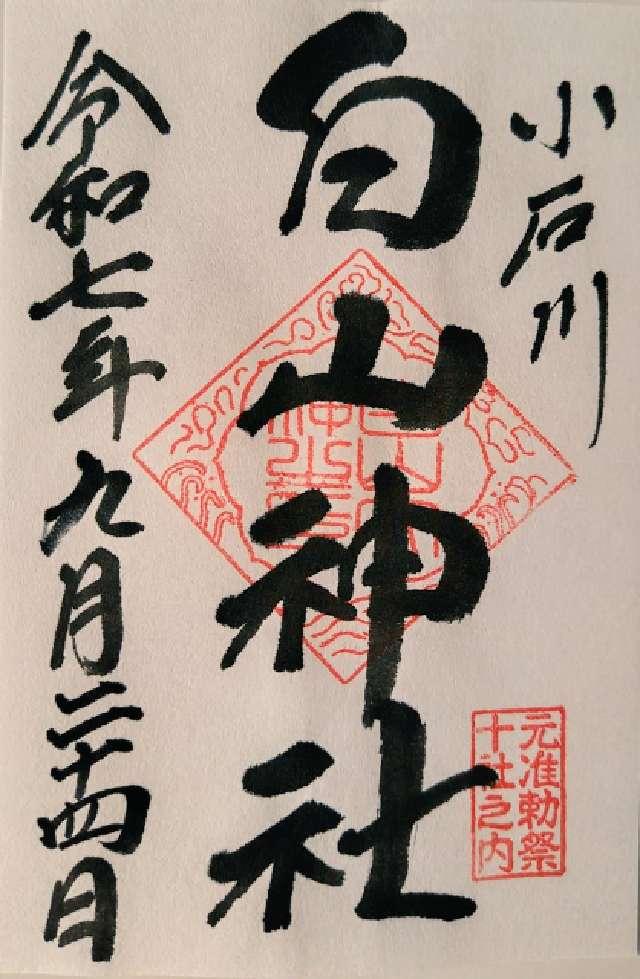 小石川
白山神社
元准勅祭
十社之内
令和七年九月二十四日